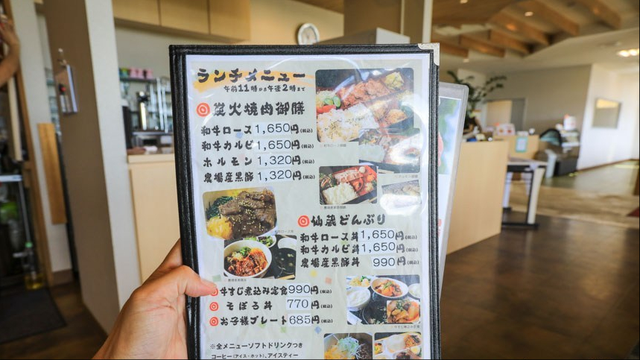 ランチメニュー
午前11時から午後2時まで
炭火焼肉御膳
和牛ロース 1,650円(税込)
和牛カルビ 1,650円(税込)
ホルモン 1,320円(税込)
農場産黒豚 1,320円(税込)
仙蔵どんぶり
和牛ロース丼 1,650円(税込)
和牛カルビ丼 1,650円(税込)
農場産黒豚丼 990円(税込)
牛すじ煮込み定食 990円(税込)
そぼろ丼 770円(税込)
お子様プレート 685円(税込)
※全メニューソフトドリンクつき
コーヒー(アイス・ホット)、アイスティー